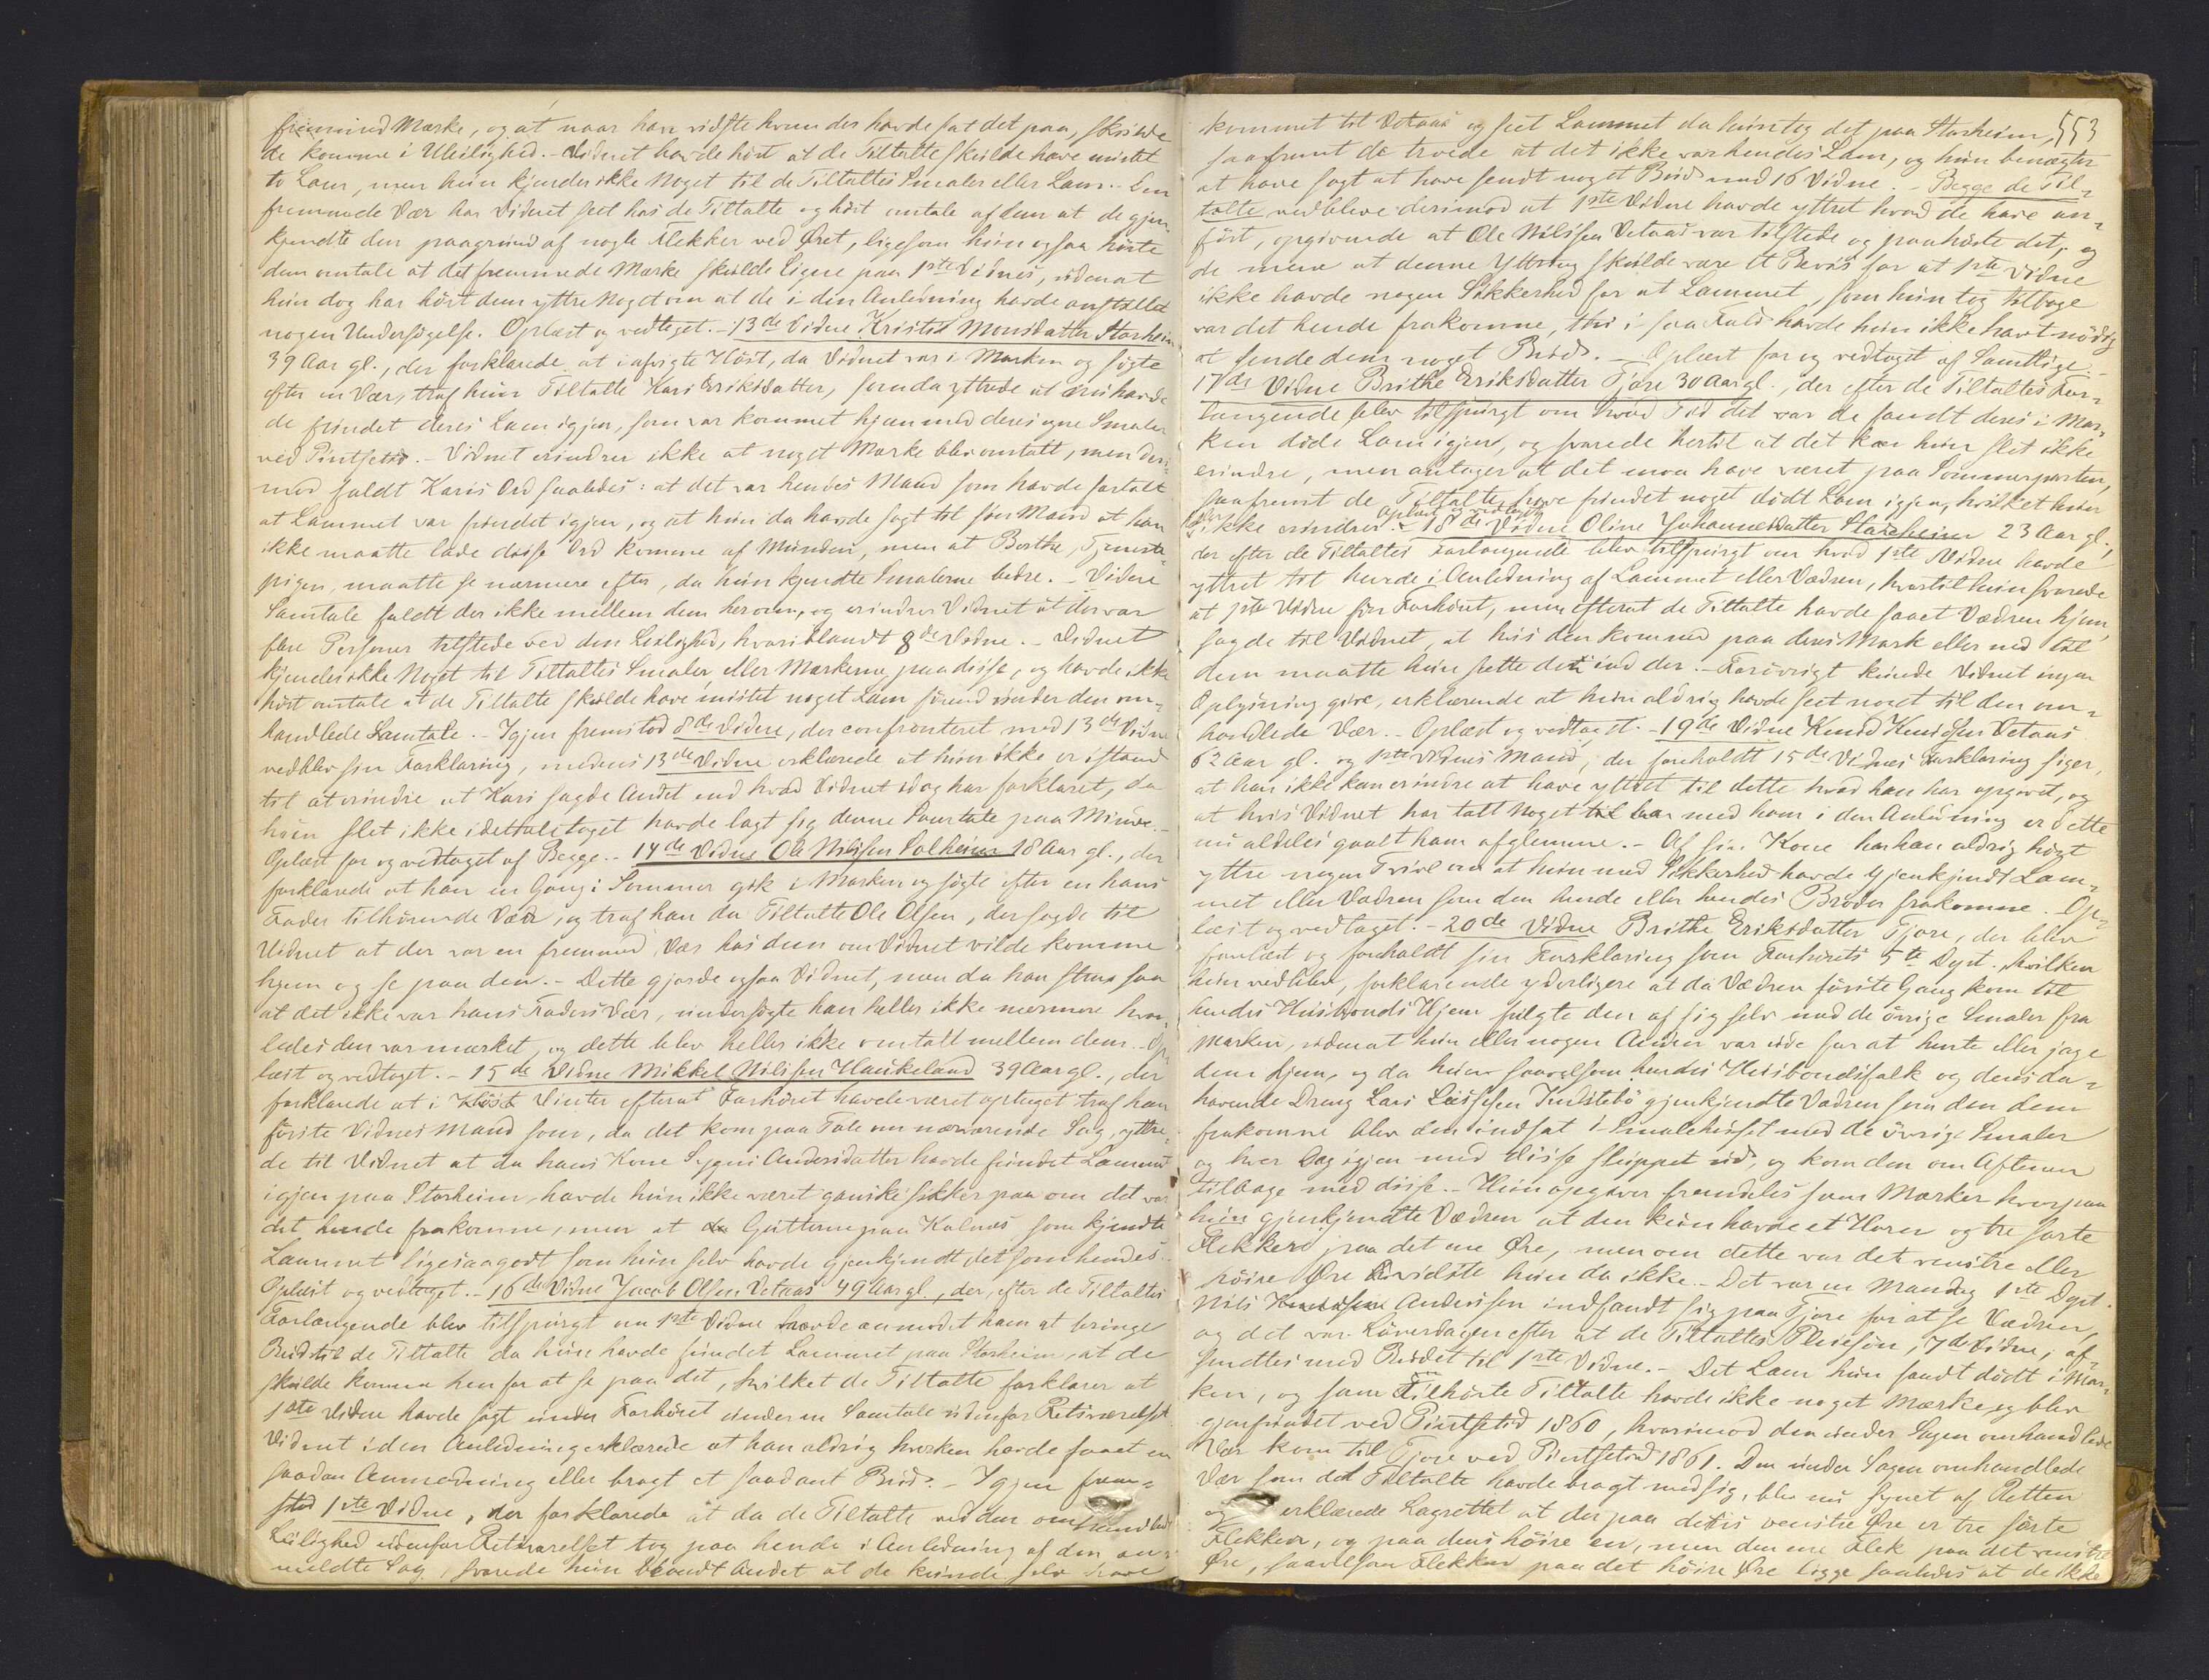 fremmed Mærke, og at naar han vidste hvem der havde sat det paa, skulde
de komme i Uleilighed. - Vidnet havde hørt at de Tiltalte skulde have mistet
to Lam, men hun kjender ikke Noget til de Tiltaltes Smaler eller Lam. - Den
fremmede Vær har Vidnet seet hos de Tiltalte og hørt omtale af dem at de gjen-
kjendte den paagrund af nogle Flekker ved Øret, ligesom hun ogsaa hørte
dem omtale at det fremmede Mærke skulde ligne paa 1ste Vidnes, uden at
hun dog har hørt dem yttre Noget om at de i den Anledning havde anstillet
nogen Undersøgelse. Oplæst og vedtaget. - 13de Vidne Kristi Monsdatter Storheim
39 Aar gl., der forklarede at i afvigte Høst, da Vidnet var i Marken og søgte
efter en Vær, traf hun Tiltalte Kari Eriksdatter, som da yttrede at nu havde
de fundet deres Lam igjen, som var kommet hjem med deres egne Smaler
ved Pintsetid. - Vidnet erindrer ikke at noget Mærke blev omtalt, men deri-
mod faldt Karis Ord saaledes: at det var hendes Mand som havde fortalt
at Lammet var fundet igjen, og at hun da havde sagt til sin Mand at han
ikke maatte lade disse Ord komme af Munden, men at Berthe, Tjeneste-
pigen, maatte se nærmere efter, da hun kjendte Smalerne bedre. - Videre
Samtale faldt der ikke mellem dem herom, og erindrer Vidnet at der var
flere Personer tilstede ved den Leilighed, hvoriblandt 8de Vidne. - Vidnet
kjender ikke Noget til Tiltaltes Smaler, eller Mærkerne paa disse, og havde ikke
hørt omtale at de Tiltalte skulde have mistet noget Lam førend under den om-
handlede Samtale. - Igjen fremstod 8de Vidne, der confronteret med 13de Vidne
vedblev sin Forklaring, medens 13de Vidne erklærede at hun ikke er istand
til at erindre at Kari sagde Andet end hvad Vidnet idag har forklaret, da
hun slet ikke idethele taget havde lagt sig denne Samtale paa Minde. -
Oplæst for og vedtaget af Begge. - 14de Vidne Ole Nilssen Solheim 18 Aar gl., der
forklarede at han en Gang i Sommer gik i Marken og søgte efter en hans
Fader tilhørende Vær, og traf han da Tiltalte Ole Olsen, der sagde til
Vidnet at der var en fremmed Vær hos dem om Vidnet vilde komme
hjem og se paa den. - Dette gjorde ogsaa Vidnet, men da han strax saa
at det ikke var hans Faders Vær, undersøgte han heller ikke nærmere hvor-
ledes den var mærket, og dette blev heller ikke omtalt mellem dem. - Op-
læst og vedtaget. - 15de Vidne Mikkel Nilssen Haukeland 39 Aar gl., der
forklarede at i Vinter efterat Forhøret havde været optaget traf han
første Vidnes Mand som, da det kom paa Tale om nærværende Sag, yttre-
de til Vidnet at da hans Kone Sygni Andersdatter havde fundet Lammet
igjen paa Storheim, havde hun ikke været ganske sikker paa om det var
det hende frakomne, men at Gutterne paa Kalnæs som kjendte
Lammet ligesaagodt som hun selv havde gjenkjendt det som hendes.
Oplæst og vedtaget. - 16de Vidne Jacob Olsen Vetaas 49 Aar gl., der, efter de Tiltaltes
Forlangende blev tilspurgt om 1ste Vidne havde anmodet ham at bringe
Bud til de Tiltalte da hun havde fundet Lammet paa Storheim, at de
skulde komme hen for at se paa det, hvilket de Tiltalte forklarer at
1ste Vidne havde sagt under Forhøret under en Samtale udenfor Retsværelset.
Vidnet i den Anledning erklærede at han aldrig hverken havde faaet en
saadan Anmodning eller bragt et saadant Bud. - Igjen frem-
stod 1ste Vidne, der forklarede at da de Tiltalte ved den omhandlede
Leilighed udenfor Retsværelset tog paa hende i Anledning af den an-
meldte Sag, svarede hun blandt Andet at de kunde selv have
553
kommet til Vetaas og seet Lammet da hun tog det paa Storheim,
saafremt de troede at det ikke var hendes Lam, og hun benægter
at have sagt at have sendt noget Bud med 16 Vidne. - Begge de Til-
talte vedbleve derimod at 1ste Vidne havde yttret hvad de have an-
ført, opgivende at Ole Nilssen Vetaas var tilstede og paahørte det, og
de mene at denne Yttring skulde være et Bevis for at 1ste Vidne
ikke havde nogen Sikkerhed for at Lammet, som hun tog tilbage
var det hende frakomne, thi i saa Fald havde hun ikke havt nødig
at sende dem noget Bud. - Oplæst for og vedtaget af Samtlige. -
17de Vidne Brithe Eriksdatter Tjore 30 Aar gl., der efter de Tiltaltes For-
langende blev tilspurgt om hvad Tid det var de fandt deres i Mar-
ken døde Lam igjen, og svarede hertil at det kan hun slet ikke
erindre, men antager at det maa have været paa Sommerparten,
saafremt de Tiltalte have fundet noget dødt Lam igjen, hvilket hun
ikke erindrer. - Oplæst og vedtaget. 18de Vidne Oline Johannesdatter Storheim 23 Aar gl.,
der efter de Tiltaltes Forlangende blev tilspurgt om hvad 1ste Vidne havde
yttret til hende i Anledning af Lammet eller Vædren, hvortil hun svarede
at 1ste Vidne før Forhøret, men efterat de Tiltalte havde faaet Vædren hjem,
sagde til Vidnet, at hvis den kom ned paa deres Mark eller ned til
dem maatte hun sætte den ind der. - Forøvrigt kunde Vidnet ingen
Oplysning give, erklærende at hun aldrig havde seet noget til den om-
handlede Vær. - Oplæst og vedtaget. - 19de Vidne Knud Knudsen Vetaas
62 Aar gl. og 1ste Vidnes Mand, der foreholdt 15de Vidnes Forklaring siger,
at han ikke kan erindre at have yttret til dette hvad han har opgivet, og
at hvis Vidnet har talt Noget med ham i den Anledning er dette
nu aldeles gaaet ham afglemme. - Af sin Kone har han aldrig hørt
yttre nogen Tvivl om at hun med Sikkerhed havde gjenkjendt Lam-
met eller Vædren som den hende eller hendes Broder frakomne. Op-
læst og vedtaget. - 20de Vidne Brithe Eriksdatter Tjore, der blev
forelæst og foreholdt sin Forklaring som Forhørets 5te Dept., hvilken
hun vedblev, forklarende yderligere at da Vædren første Gang kom til
hendes Huusbonds Hjem fulgte den af sig selv med de øvrige Smaler fra
Marken, uden at hun eller nogen Anden var ude for at hente eller jage
dem hjem, og da hun saavelsom hendes Huusbondsfolk og deres da-
havende Dreng Lars gjenkjendte Vædren som den dem
frakomne blev den indsat i Smalehuset med de øvrige Smaler
og hver Dag igjen med disse sluppet ud, og kom den om Aftenen
tilbage med disse. - Hun opgiver fremdeles som Mærker hvorpaa
hun gjenkjendte Vædren at den kun havde et Horn og tre sorte
Flekker paa det ene Øre, men om dette var det venstre eller
høire Øre vidste hun da ikke. - Det var en Mandag 1ste Dept.
Nils Anderssen indfandt sig paa Tjore for at se Vædren,
og det var Løverdagen efter at de Tiltaltes Pleiesøn, 7de Vidne, af-
sendtes med Budet til 1ste Vidne. - Det Lam hun fandt dødt i Mar-
ken, og som tilhørte Tiltalte havde ikke noget Mærke og blev
gjenfundet ved Pintsetid 1860, hvorimod den under Sagen omhandlede
Vær kom til Tjore ved Pintsetid 1861. Den under Sagen omhandlede
Vær som de Tiltalte havde bragt med sig, blev nu synet af Retten
og erklærede Lagrettet at der paa dens venstre Øre er tre sorte
Flekker, og paa dens høire en, men den ene Flek paa det venstre
Øre, saavelsom Flekken paa det høire Øre ligge saaledes at de ikke